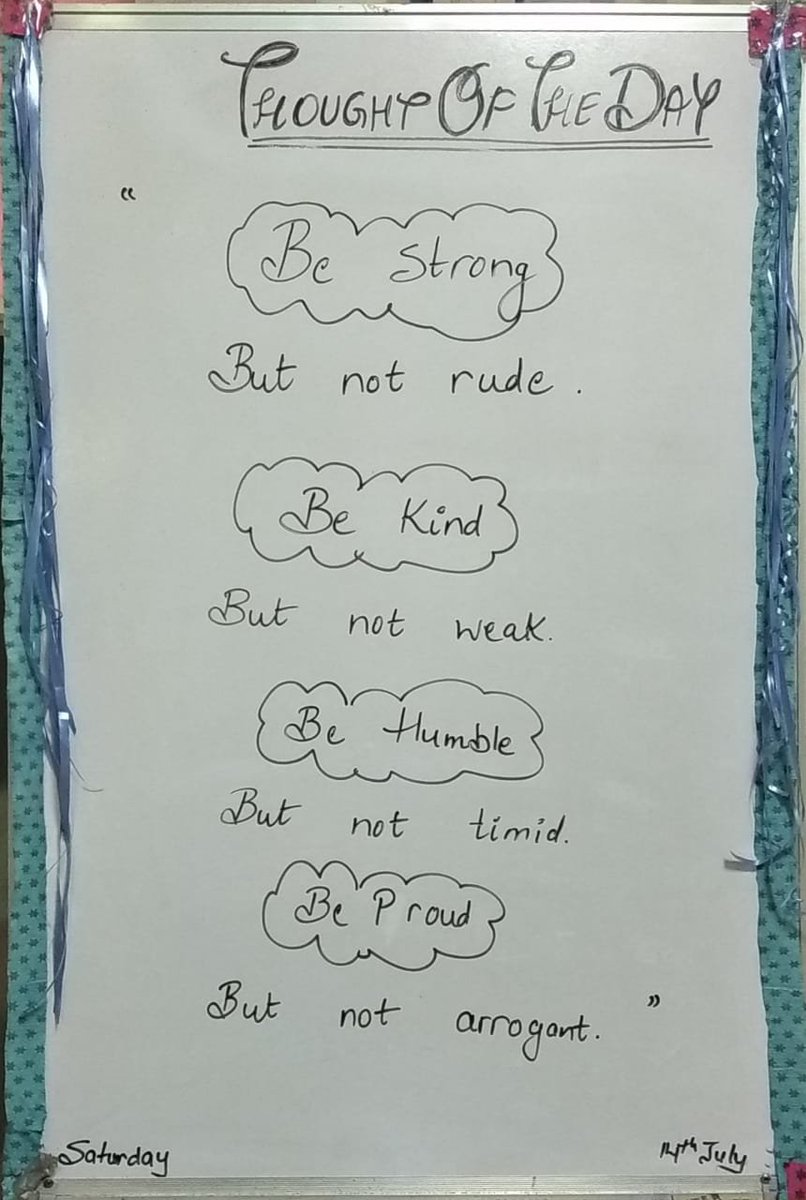 THOUGHT OF THE DAY
“
Be Strong
But not rude.
Be Kind
But not weak.
Be Humble
But not timid.
Be Proud
But not arrogant. ”
Saturday 14th July